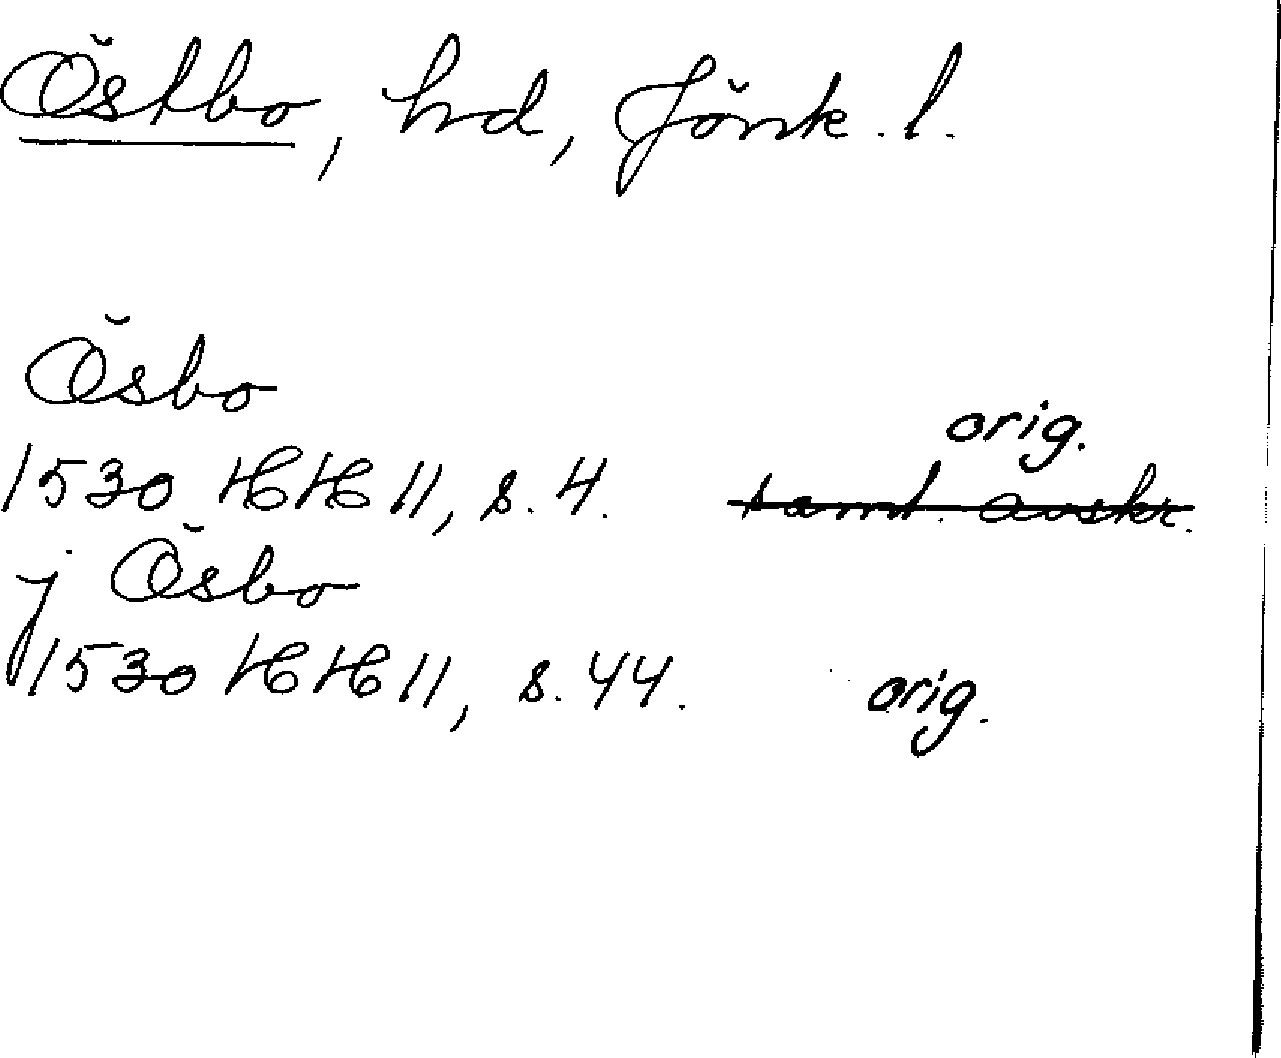 Östbo, hd, Jönk. l.
Ösbo
orig.
1530 HH 11, s. 4. samt. avskr.
j Ösbo
1530 HH 11, s. 44. orig.